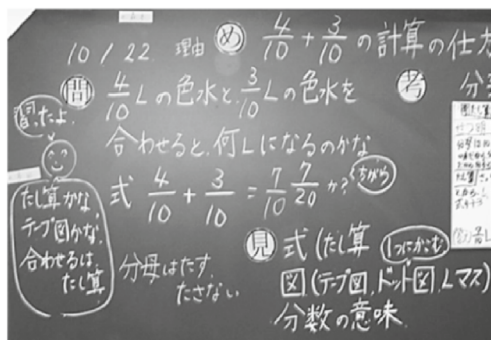 10/22 理由 め 4/10+3/10の計算の仕方
問 4/10Lの色水と、3/10Lの色水を
合わせると、何Lになるのかな
考
習ったよ
式 4/10+3/10=7/10 7/20か?
たし算かな
テープ図かな
合わせるは、
たし算
分母はたす、
たさない
見 式(たし算
図(テープ図、ドット図、Lマス)
分数の意味